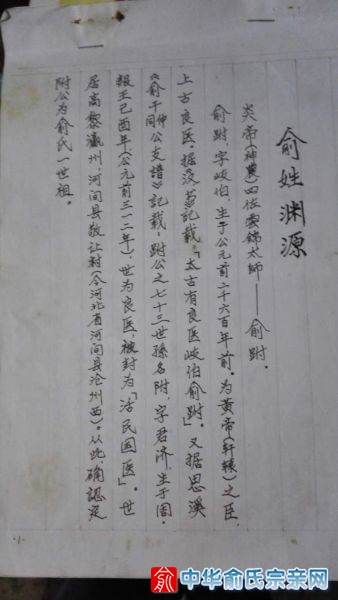 俞姓渊源
炎帝(神農)四佐雲錦太師——俞跗.
俞跗,字岐伯,生于公元前二千六百年前.为黄帝(轩辕)之臣
上古良医.据汉书記載:「太古有良医岐伯俞跗」.又据思溪
《俞千同仲公支谱》記載:跗公之七十三世孫名附,字君济,生于周.
赧王己酉年(公元前三一二年),世为良医,被封为「活民国医」.世
居高黎瀛州,河间县敬让村(今河北省河间县沧州西).从此,确認定
附公为俞氏一世祖.
俞
中华俞氏宗亲网